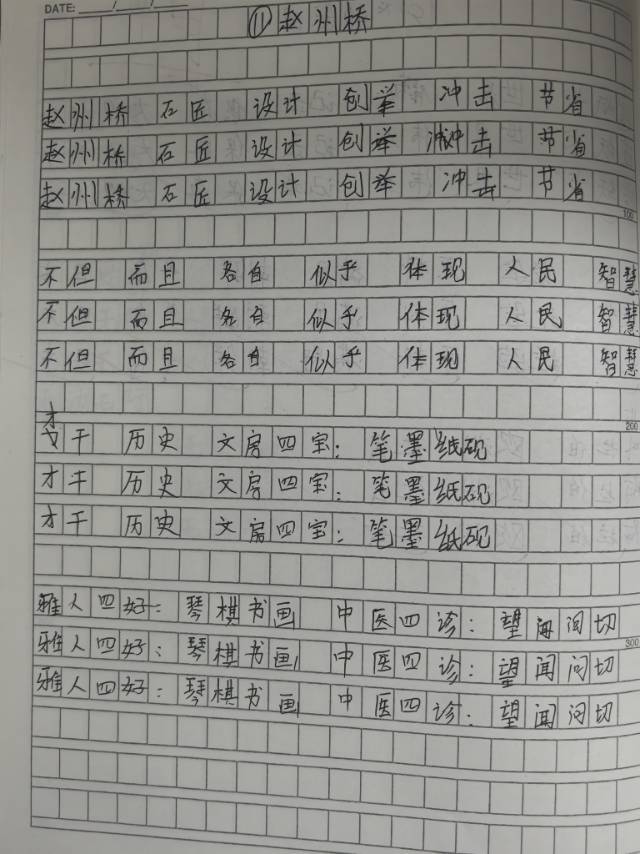 DATE: / /
⑪赵州桥
赵州桥 石匠 设计 创举 冲击 节省
赵州桥 石匠 设计 创举 减冲击 节省
赵州桥 石匠 设计 创举 冲击 节省
100
不但 而且 各自 似乎 体现 人民 智慧
不但 而且 各自 似乎 体现 人民 智慧
不但 而且 各自 似乎 体现 人民 智慧
200
才干 历史 文房四宝：笔墨纸砚
才干 历史 文房四宝：笔墨纸砚
才干 历史 文房四宝：笔墨纸砚
雅人四好：琴棋书画 中医四诊：望闻问切
300
雅人四好：琴棋书画 中医四诊：望闻问切
雅人四好：琴棋书画 中医四诊：望闻问切